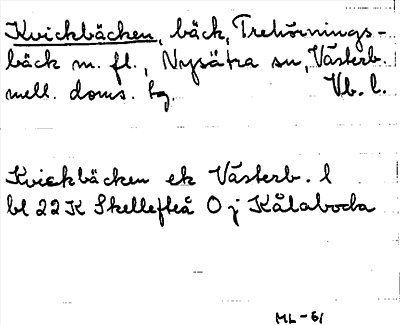 Kvickbäcken, bäck, Trehörnings-
bäck m. fl., Nysätra sn, Västerb.
mell. doms. tg. Vb. l.
Kvickbäcken ek Västerb. l
bl 22K Skellefteå O j Kålaboda
ML-61